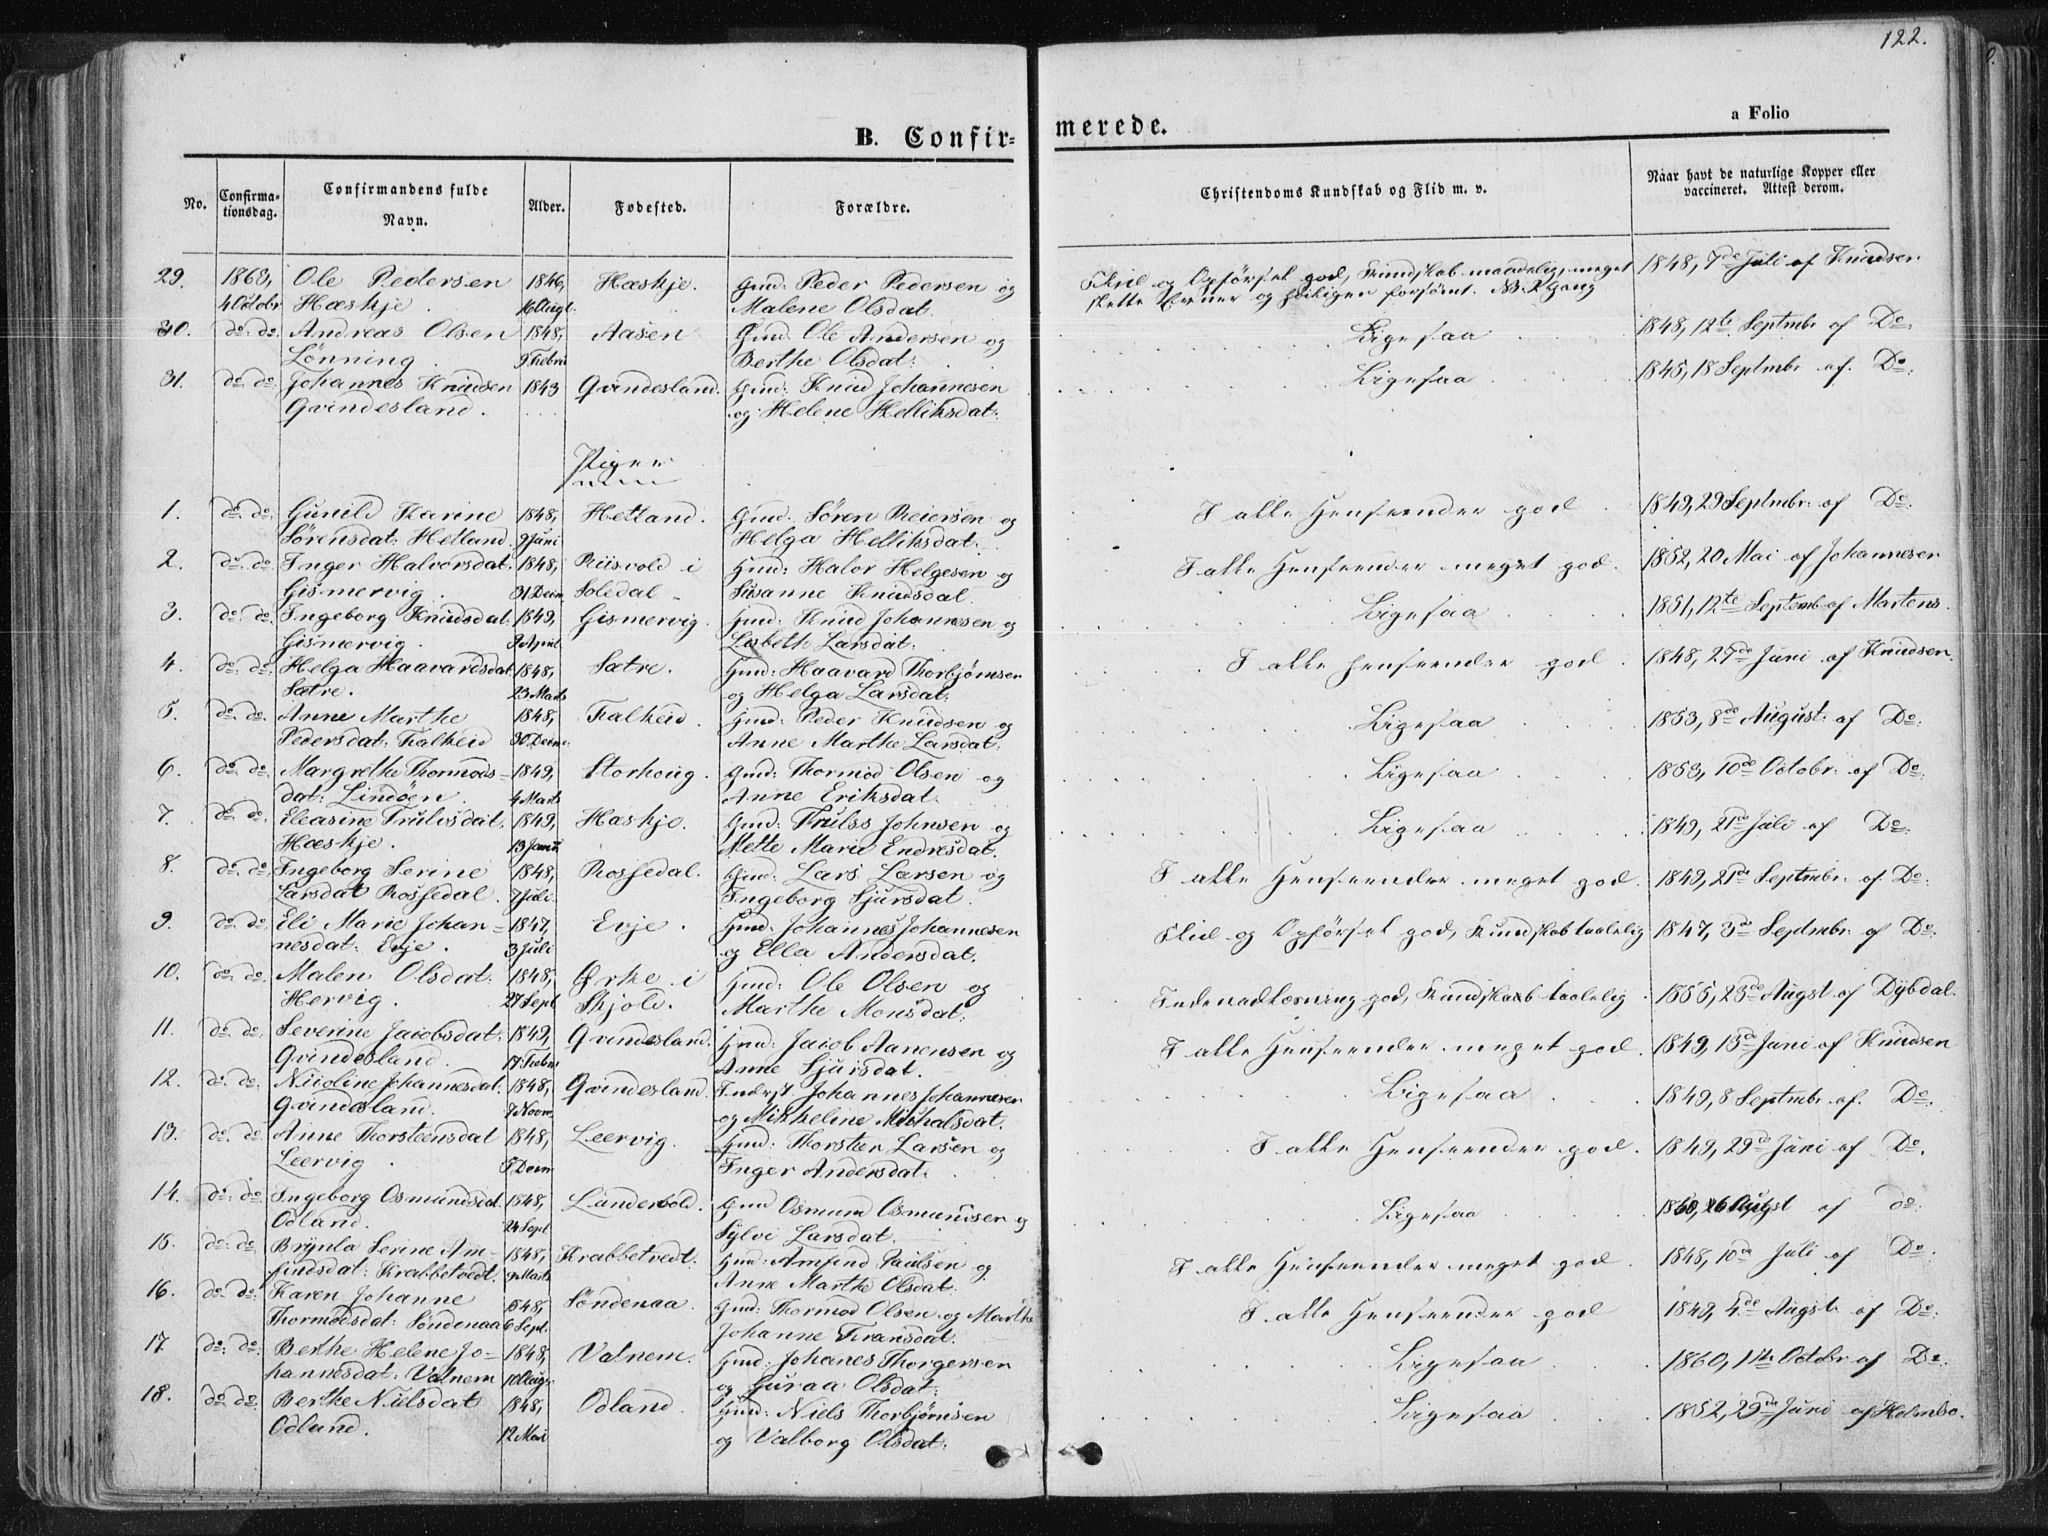 122.
B. Confir-
merede.
a Folio
No.
Confirma-
tionsdag.
Confirmandens fulde
Navn.
Alder.
Fødested.
Forældre.
Christendoms Kundskab og Flid m. v.
Naar havt de naturlige Kopper eller
vaccineret. Attest derom.
29. 1863, Ole Pedersen 1846, Hæskje. Gmd: Peder Pedersen og Flid og Opførsel god, Kundskab maadelig, meget 1848, 7de Juli af Knudsen
4 Octobr Hæskje. 16 Augt. Malene Olsdat. slette Evner og forsømt. NB. 2 Gang
30. do: do: Andreas Olsen 1848, Aasen Gmd. Ole Andersen og Ligesaa 1848, 12te Septmbr af Do:
Lønning. 9 Febru Berthe Olsdat:
31. do: do: Johannes Knudsen 1843 Qvindesland. Gmd: Knud Johannesen Ligesaa 1845, 18 Septmbr af. Do:
Qvindesland. og Helene Helliksdat:
Piger
1. do: do: Gunild Karine 1848, Hetland. Gmd. Søren Reiersen og I alle Henseender god 1849, 29 Septmbr: af Do:
Sørensdat: Hetland. 9 Juni Helga Helliksdat.
2. do: do: Inger Halvorsdat. 1848, Riisvold i Gmd: Halvor Helgesen og I alle Henseender meget god. 1852, 20 Mai af Johannesen
Gismervig. 31 Decm Soledal Susanne Knudsdat.
3. do: do: Ingeborg Knudsdat: 1849, Gismervig. Gmd: Knud Johannesen og Ligesaa 1851, 12te Septemb af Martens.
Gismervig. 9 April Lisbeth Larsdat:
4. do: do: Helga Haavardsdat 1848, Sætre. Gmd: Haavard Thorbjørnsen I alle Henseender god. 1848, 29de Juni af Knudsen.
Sætre. 23 Marts og Helga Larsdat.
5. do: do: Anne Marthe 1848, Falkeid. Gmd: Peder Knudsen og Ligesaa 1853, 8de August: af Do:
Pedersdat: Falkeid 30 Decm: Anne Marthe Larsdat:
6. do: do: Margrethe Thormods- 1849, Storhoug. Gmd: Thormod Olsen og Ligesaa 1853, 10de Octobr: af Do:
dat: Lindøen. 4 Marts Anne Eriksdat.
7. do: do: Eleasine Trulsdat. 1849, Hæskje. Gmd: Trulss Johnsen og Ligesaa 1849, 21de Juli af Do:
Hæskje. 13 Janu Mette Marie Endresdat.
8. do: do: Ingeborg Serine 1848, Rossedal. Gmd: Lars Larsen og I alle Henseender meget god. 1849, 21de Septmbr: af Do:
Larsdat Rossedal. 7 Juli. Ingeborg Sjursdat.
9. do: do: Eli Marie Johan- 1847, Evje. Gmd: Johannes Johannesen Flid og Opførsel god, Kundskab taalelig 1847, 3de Septmbr: af Do:
nesdat: Evje. 3 Juli og Ella Andersdat.
10. do: do: Malen Olsdat: 1848, Ørke i Gmd: Ole Olsen og Indenadlæsning god, Kundskab taalelig 1855, 23de Augst af Dybdal.
Hervig. 27 Sept Skjold. Marthe Monsdat:
11. do: do: Severine Jacobsdat: 1849, Qvindesland. Gmd: Jacob Aanensen og I alle Henseender meget god. 1849, 13de Juni af Knudsen
Qvindesland. 17 Febru Anne Sjursdat.
12. do: do: Nicoline Johannesdat. 1848, Qvindesland. Inderst Johannes Johannesen Ligesaa 1849, 8 Septmbr af. Do:
Qvindesland. 9 Novm og Mikkeline Michalsdat.
13. do: do: Anne Thorsteensdat 1848, Leervig. Gmd: Thorsteen Larsen og I alle Henseender god. 1849, 29de Juni af Do.
Leervig. 5 Decm Inger Andersdat.
14. do: do: Ingeborg Osmundsdat. 1848, Landerbold. Gmd Osmund Osmundsen og Ligesaa 1860, 16 Augst af do:
Odland. 24 Sept. Sylvi Larsdat.
15. do: do: Brynla Serine Am- 1848, Krabbetvedt. Gmd: Amfind Paulsen og I alle Henseender meget god. 1848, 10de Juli af Do.
findsdat: Krabbetvedt. 9 Marts Anne Marthe Olsdat.
16. do: do: Karen Johanne 1848, Søndenaa. Gmd: Thormod Olsen og Marthe I alle Henseender god 1849, 4de Augst: af Do:
Thormodsdat: Søndenaa 6 Sept. Johanne Fransdat.
17. do: do: Berthe Helene Jo- 1848, Valnem. Gmd: Johanes Thorgersen Ligesaa 1860, 1te Octobr af Do:
hannesdat: Valnem 10 Aug: og Guraa Olsdat:
18. do: do: Berthe Nielsdat 1848, Odland. Gmd: Niels Thorbjørnsen Ligesaa 1852, 29de Juni af Holmbo.
Odland. 12 Mai og Valborg Olsdat: